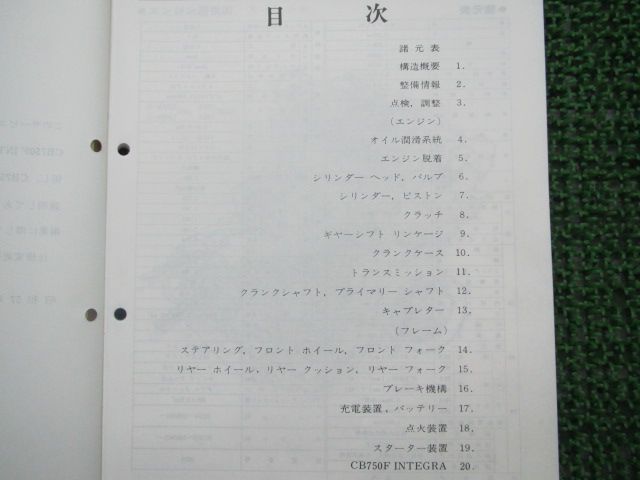 目次
諸元表
構造概要 1.
整備情報 2.
点検，調整 3.
(エンジン)
オイル潤滑系統 4.
エンジン脱着 5.
シリンダー ヘッド，バルブ 6.
シリンダー，ピストン 7.
クラッチ 8.
ギヤーシフト リンケージ 9.
クランクケース 10.
トランスミッション 11.
クランクシャフト，プライマリー シャフト 12.
キャブレター 13.
(フレーム)
ステアリング，フロント ホイール，フロント フォーク 14.
リヤー ホイール、リヤー クッション，リヤー フォーク 15.
ブレーキ機構 16.
充電装置、バッテリー 17.
点火装置 18.
スターター装置 19.
CB750F INTEGRA 20.